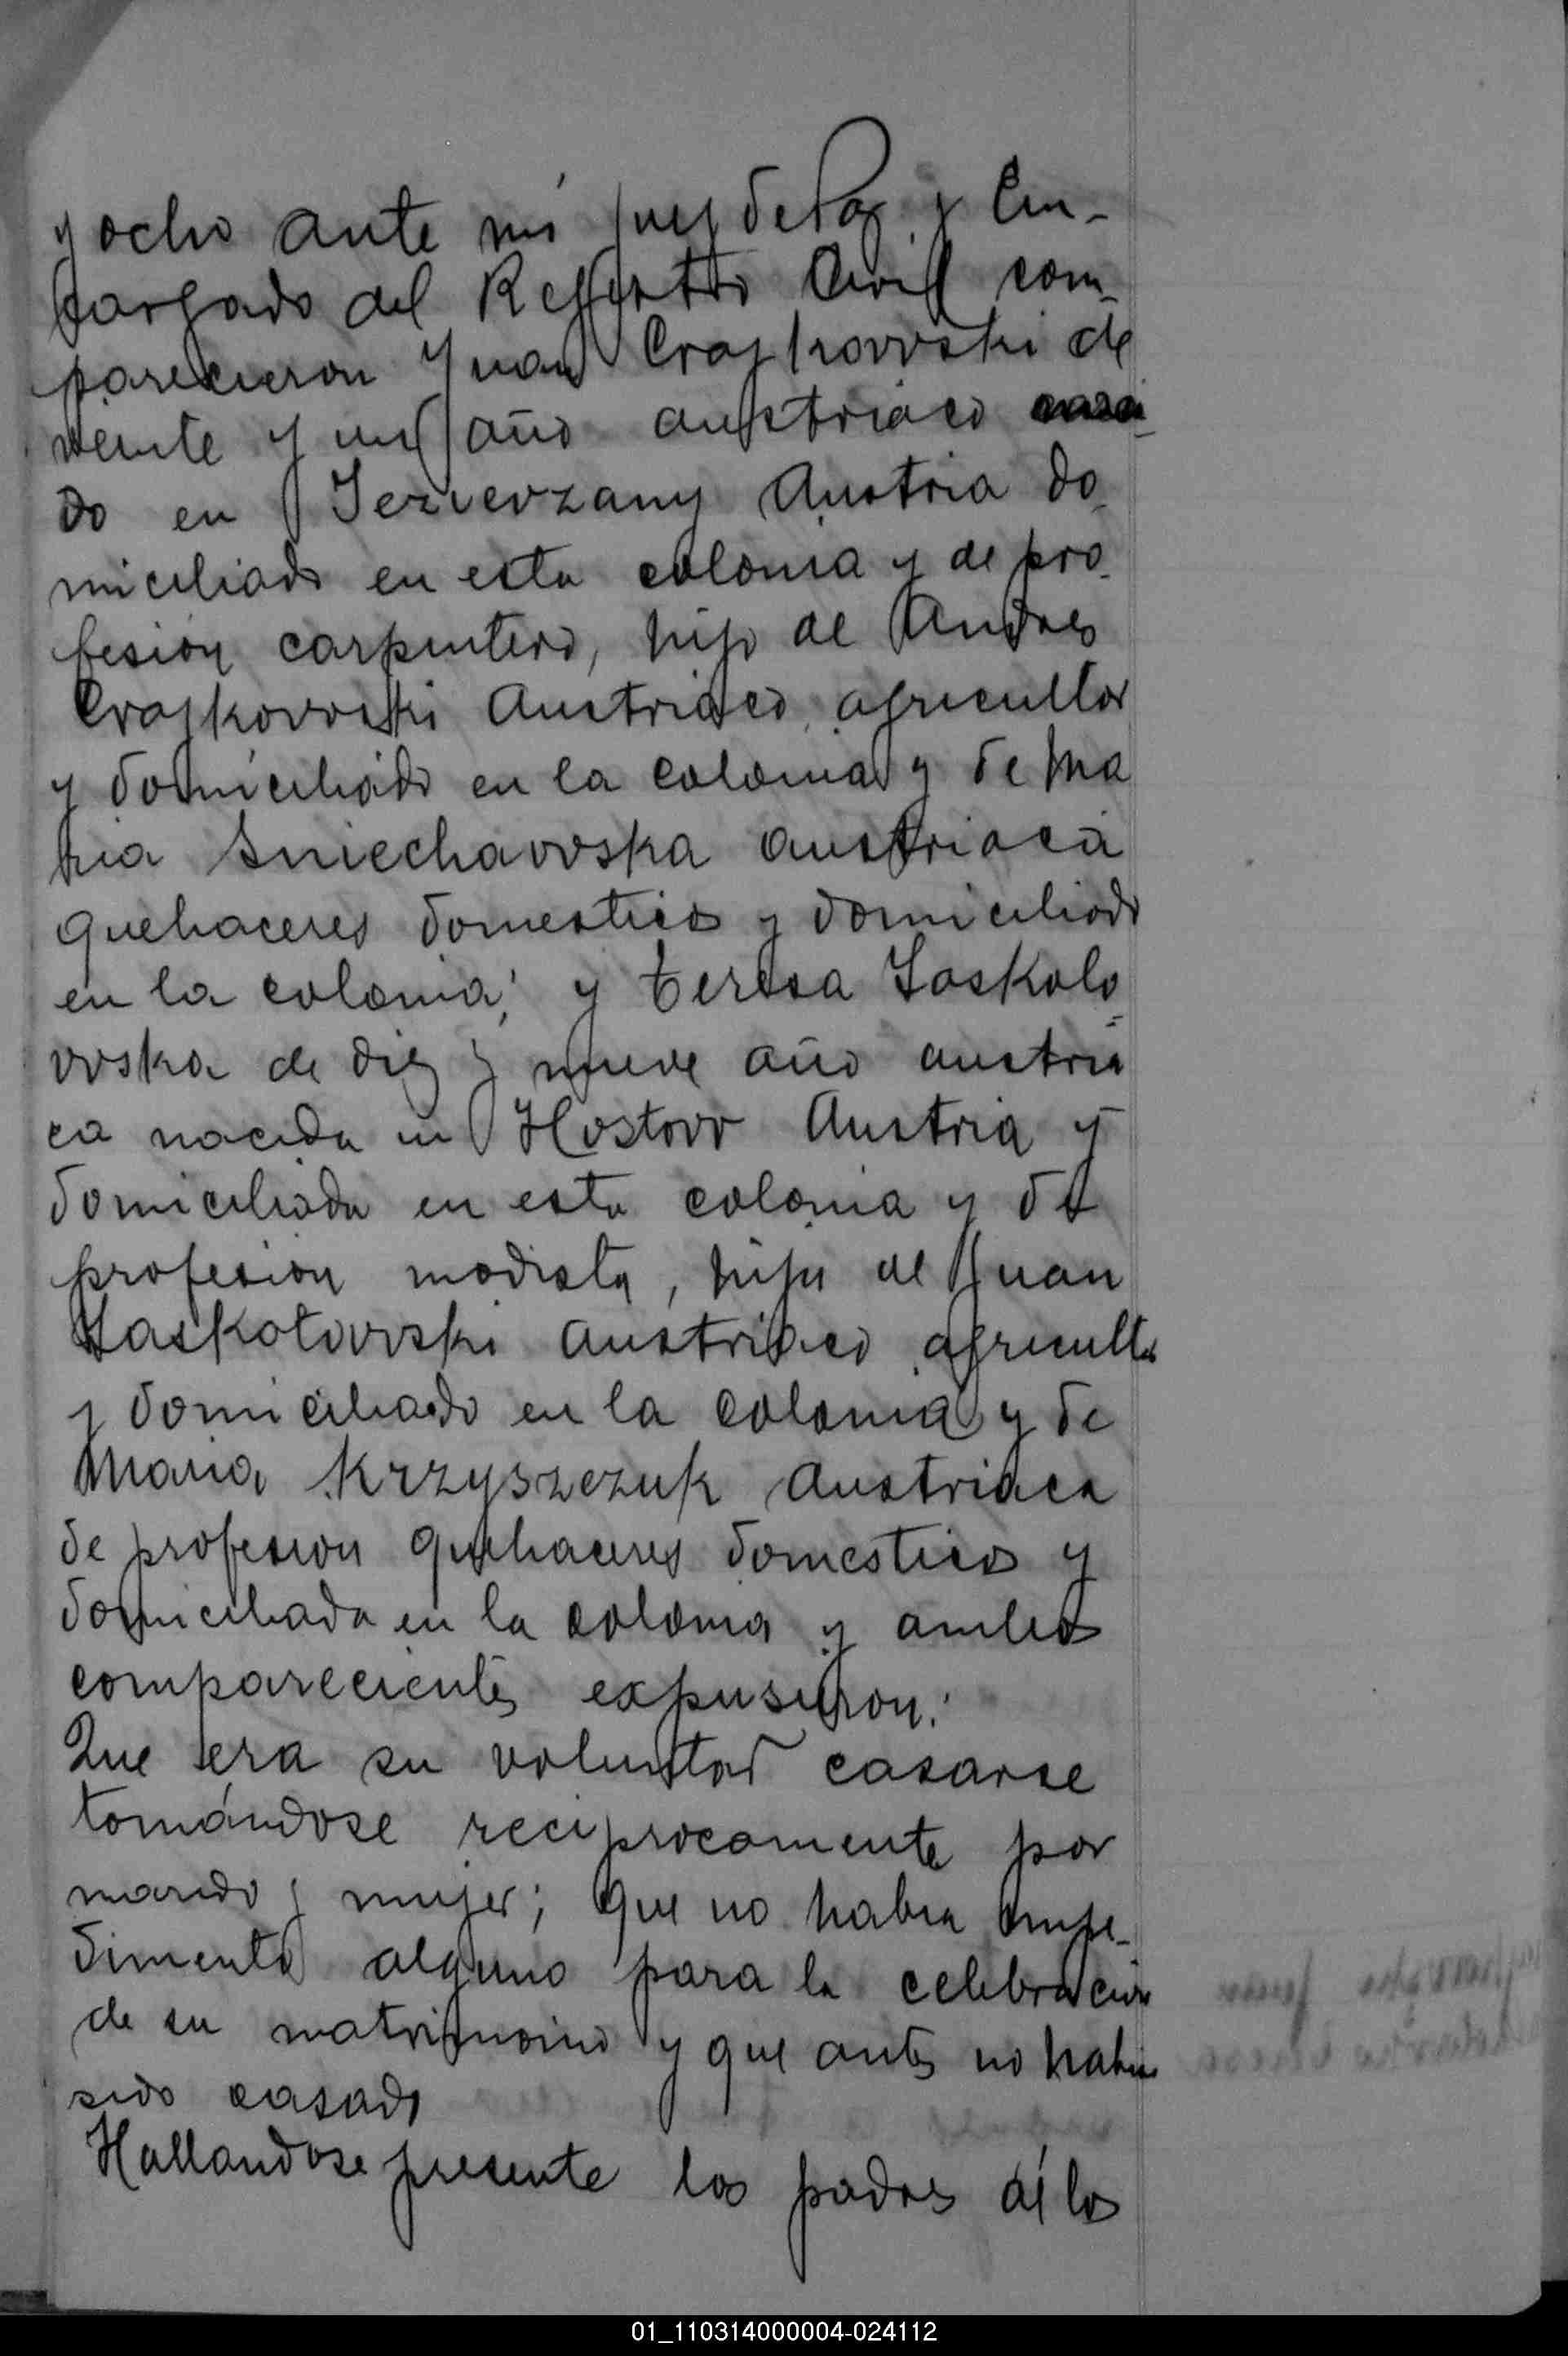 y ocho ante mí Juez de Paz y En-
cargado del Registro Civil com-
parecieron Juan Crajkowski de
veinte y un año austriaco naci-
do en Jezierzany Austria do-
miciliado en esta colonia y de pro-
fesion carpintero, hijo de Andres
Crajkowski Austriaco agricultor
y domiciliado en la colonia y de Ma
ria Sniechawska austriaca
quehaceres domesticos y domiciliado
en la colonia; y Teresa Laskolo-
wska de diez y nueve año austria
ca nacida en Hostow Austria y
domiciliada en esta colonia y de
profesion modista, hija de Juan
Laskolowski austriaco agricultor
y domiciliado en la colonia y de
Maria Krzyszczuk Austriaca
de profesion quehaceres domesticos y
domiciliada en la colonia y ambos
comparecientes expusieron:
Que era su voluntad casarse
tomándose reciprocamente por
marido y mujer; que no habia impe-
dimento alguno para la celebracion
de su matrimonio y que antes no habia
sido casado
Hallandose presente los padres de los
01_110314000004-024112